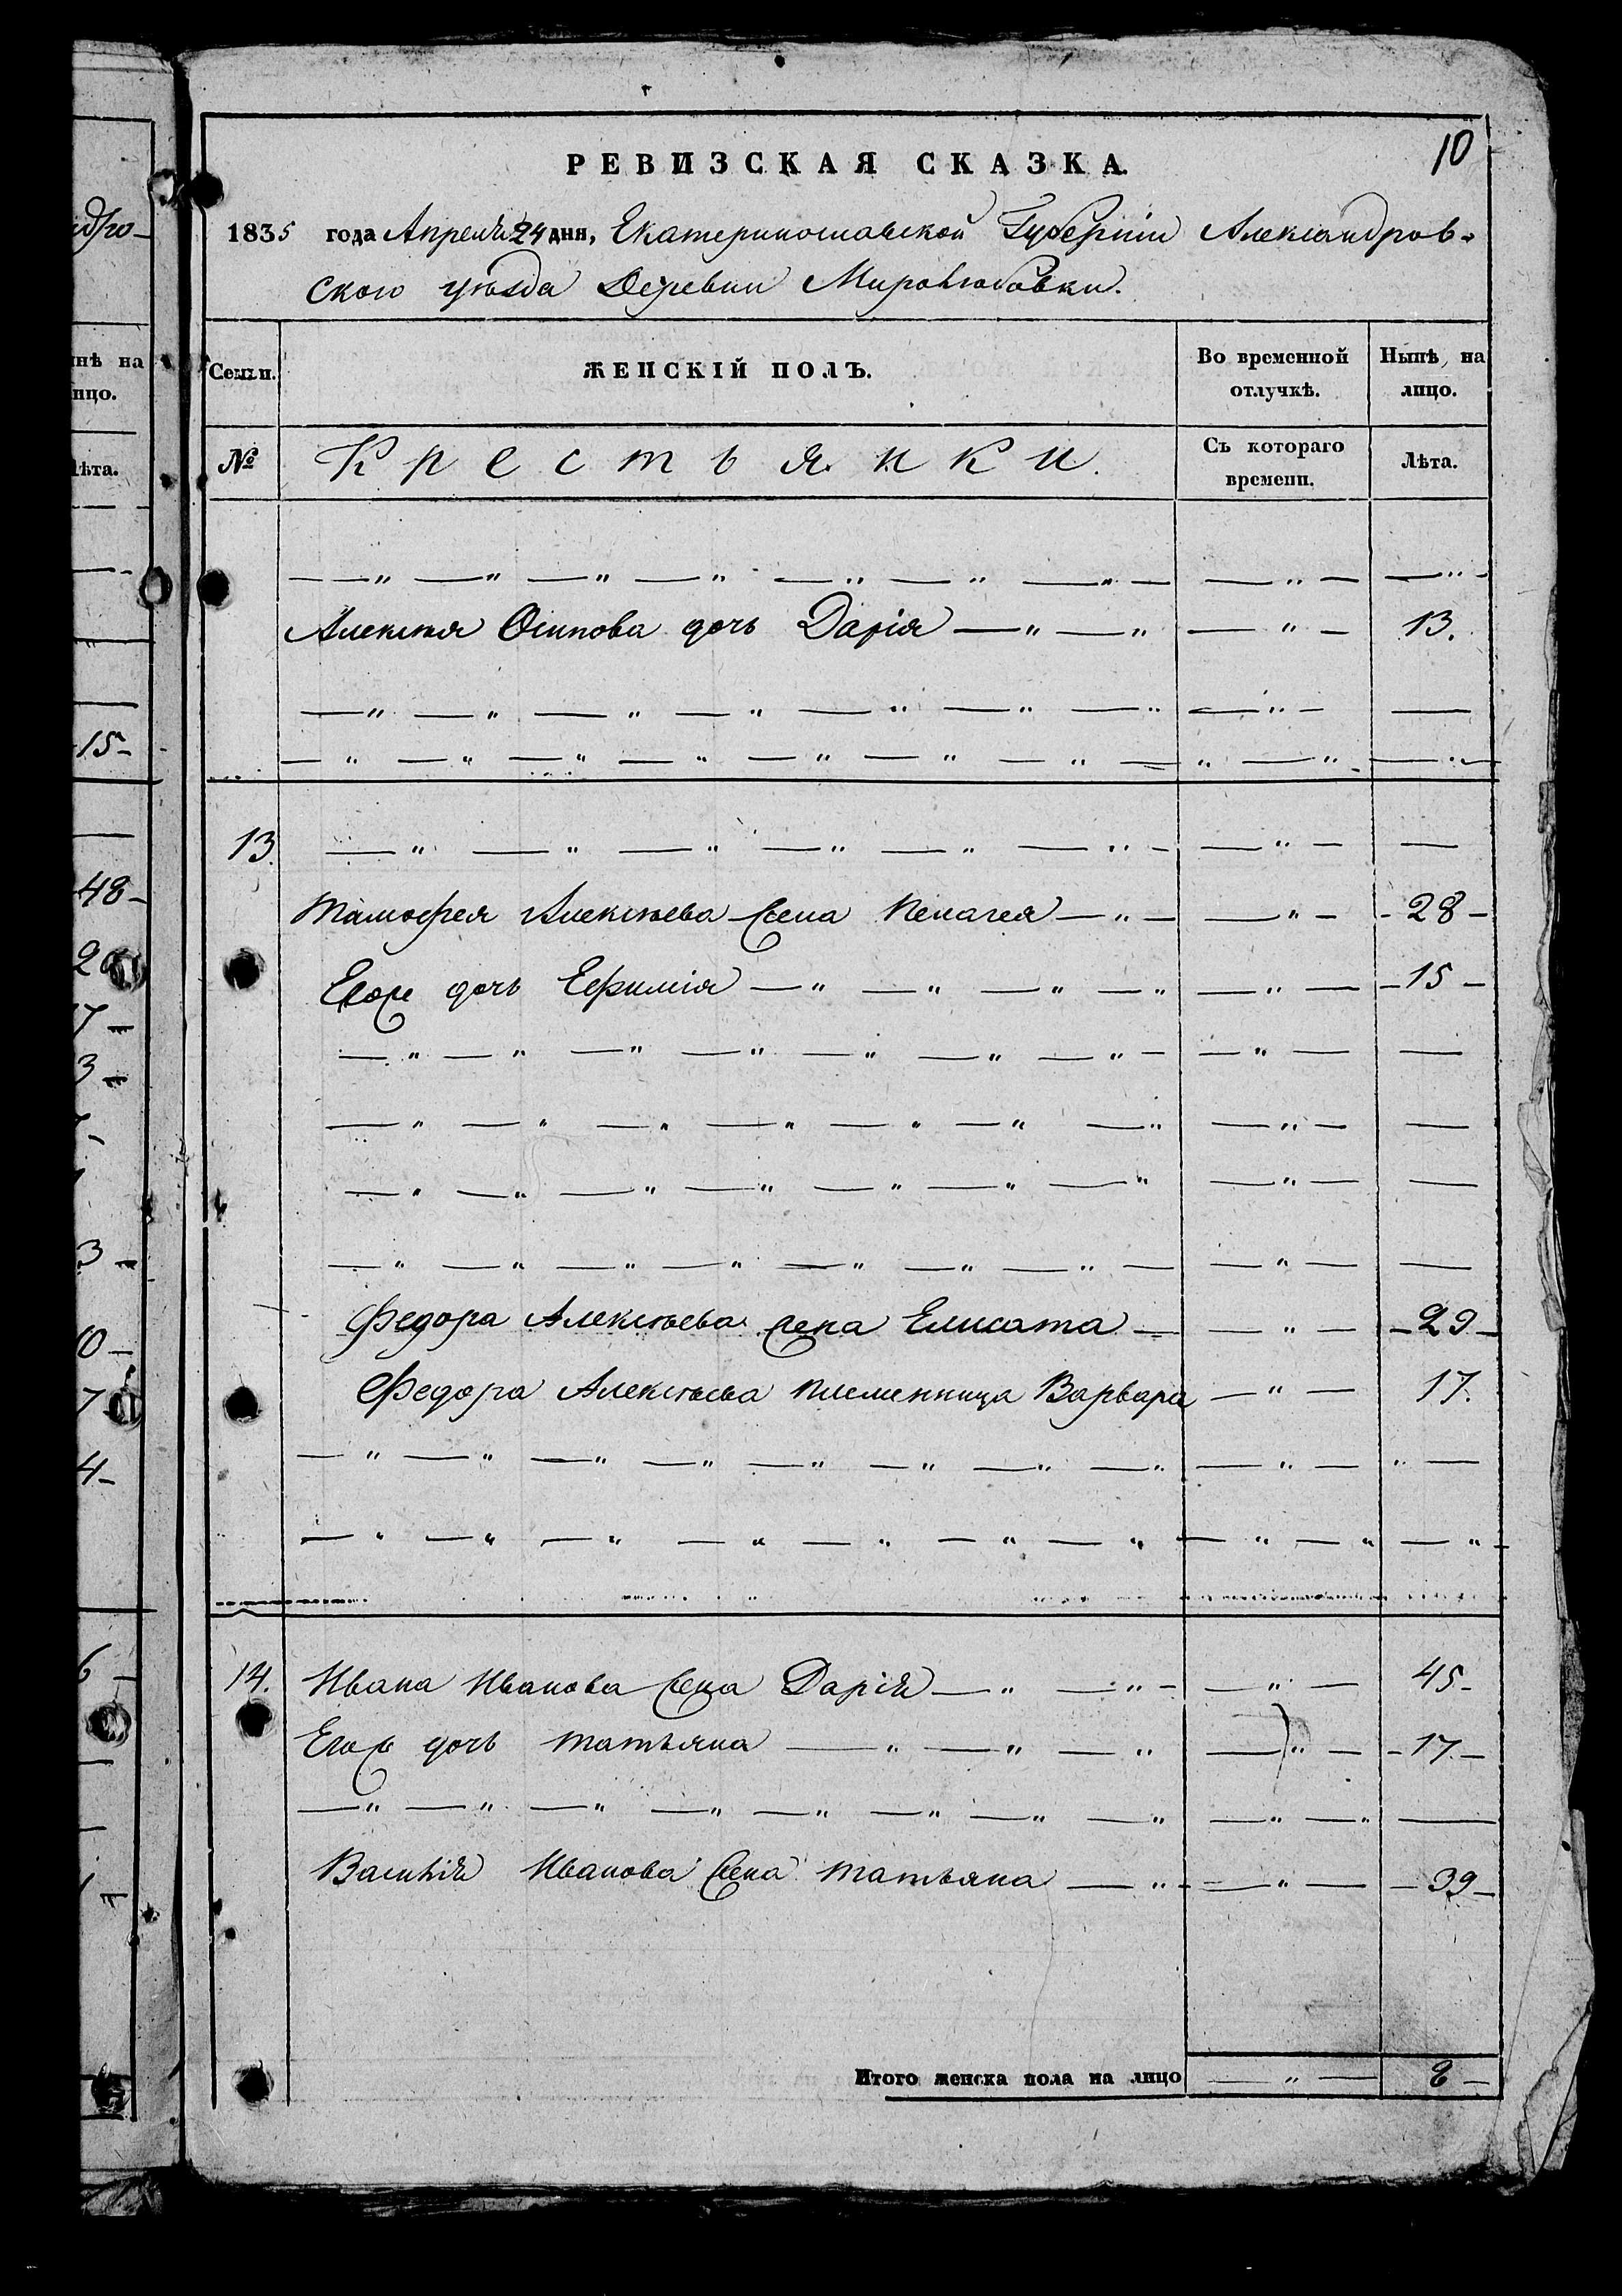 др҃о-
нѣ на
ицо.
лѣта.
15-
48-
20
7 -
3 -
3 -
0 -
7 -
4 -
6 -
10
РЕВИЗСКАЯ СКАЗКА.
1835 года Апреля 24 дня, Екатеринославской Губерніи Александров-
ского уѣзда Деревни Миролюбовки.
Семьи. ЖЕНСКІЙ ПОЛЪ. Во временной отлучкѣ. Нынѣ на лицо.
№ Крестьянки. Съ котораго времени. Лѣта.
— " — " — " — " — " — " — " — — " — — " -
Алексея Осипова дочь Дарія — " — " — " — 13.
— " — " — " — " — " — " — " — " — —
— " — " — " — " — " — " — " — " — " — " —
13. — " — " — " — " — " — " — — " — —
Тимофея Алексѣева жена Пелагея — " — — " — - 28 -
Его же дочь Ефимія — " — " — " — " — " — - 15 -
— " — " — " — " — " — " — " — — " — —
— " — " — " — " — " — " — " — " — —
— " — " — " — " — " — " — " — " — —
— " — " — " — " — " — " — " — — " — —
Федора Алексѣева жена Елисата — — " — - 29 -
Федора Алексѣева племенница Варвара — " — 17.
— " — " — " — " — " — " — " — " — " — " —
— " — " — " — " — " — " — " — " — " — "
14. Ивана Иванова жена Дарія — " — " - — " — 45 -
Его же дочь Татьяна — " — " — " — " — - 17 -
— " — " — " — " — " — " — " — " — " — " —
Василія Иванова жена Татьяна — " - — " — - 39 -
Итого женска пола на лицо — " — 8 -